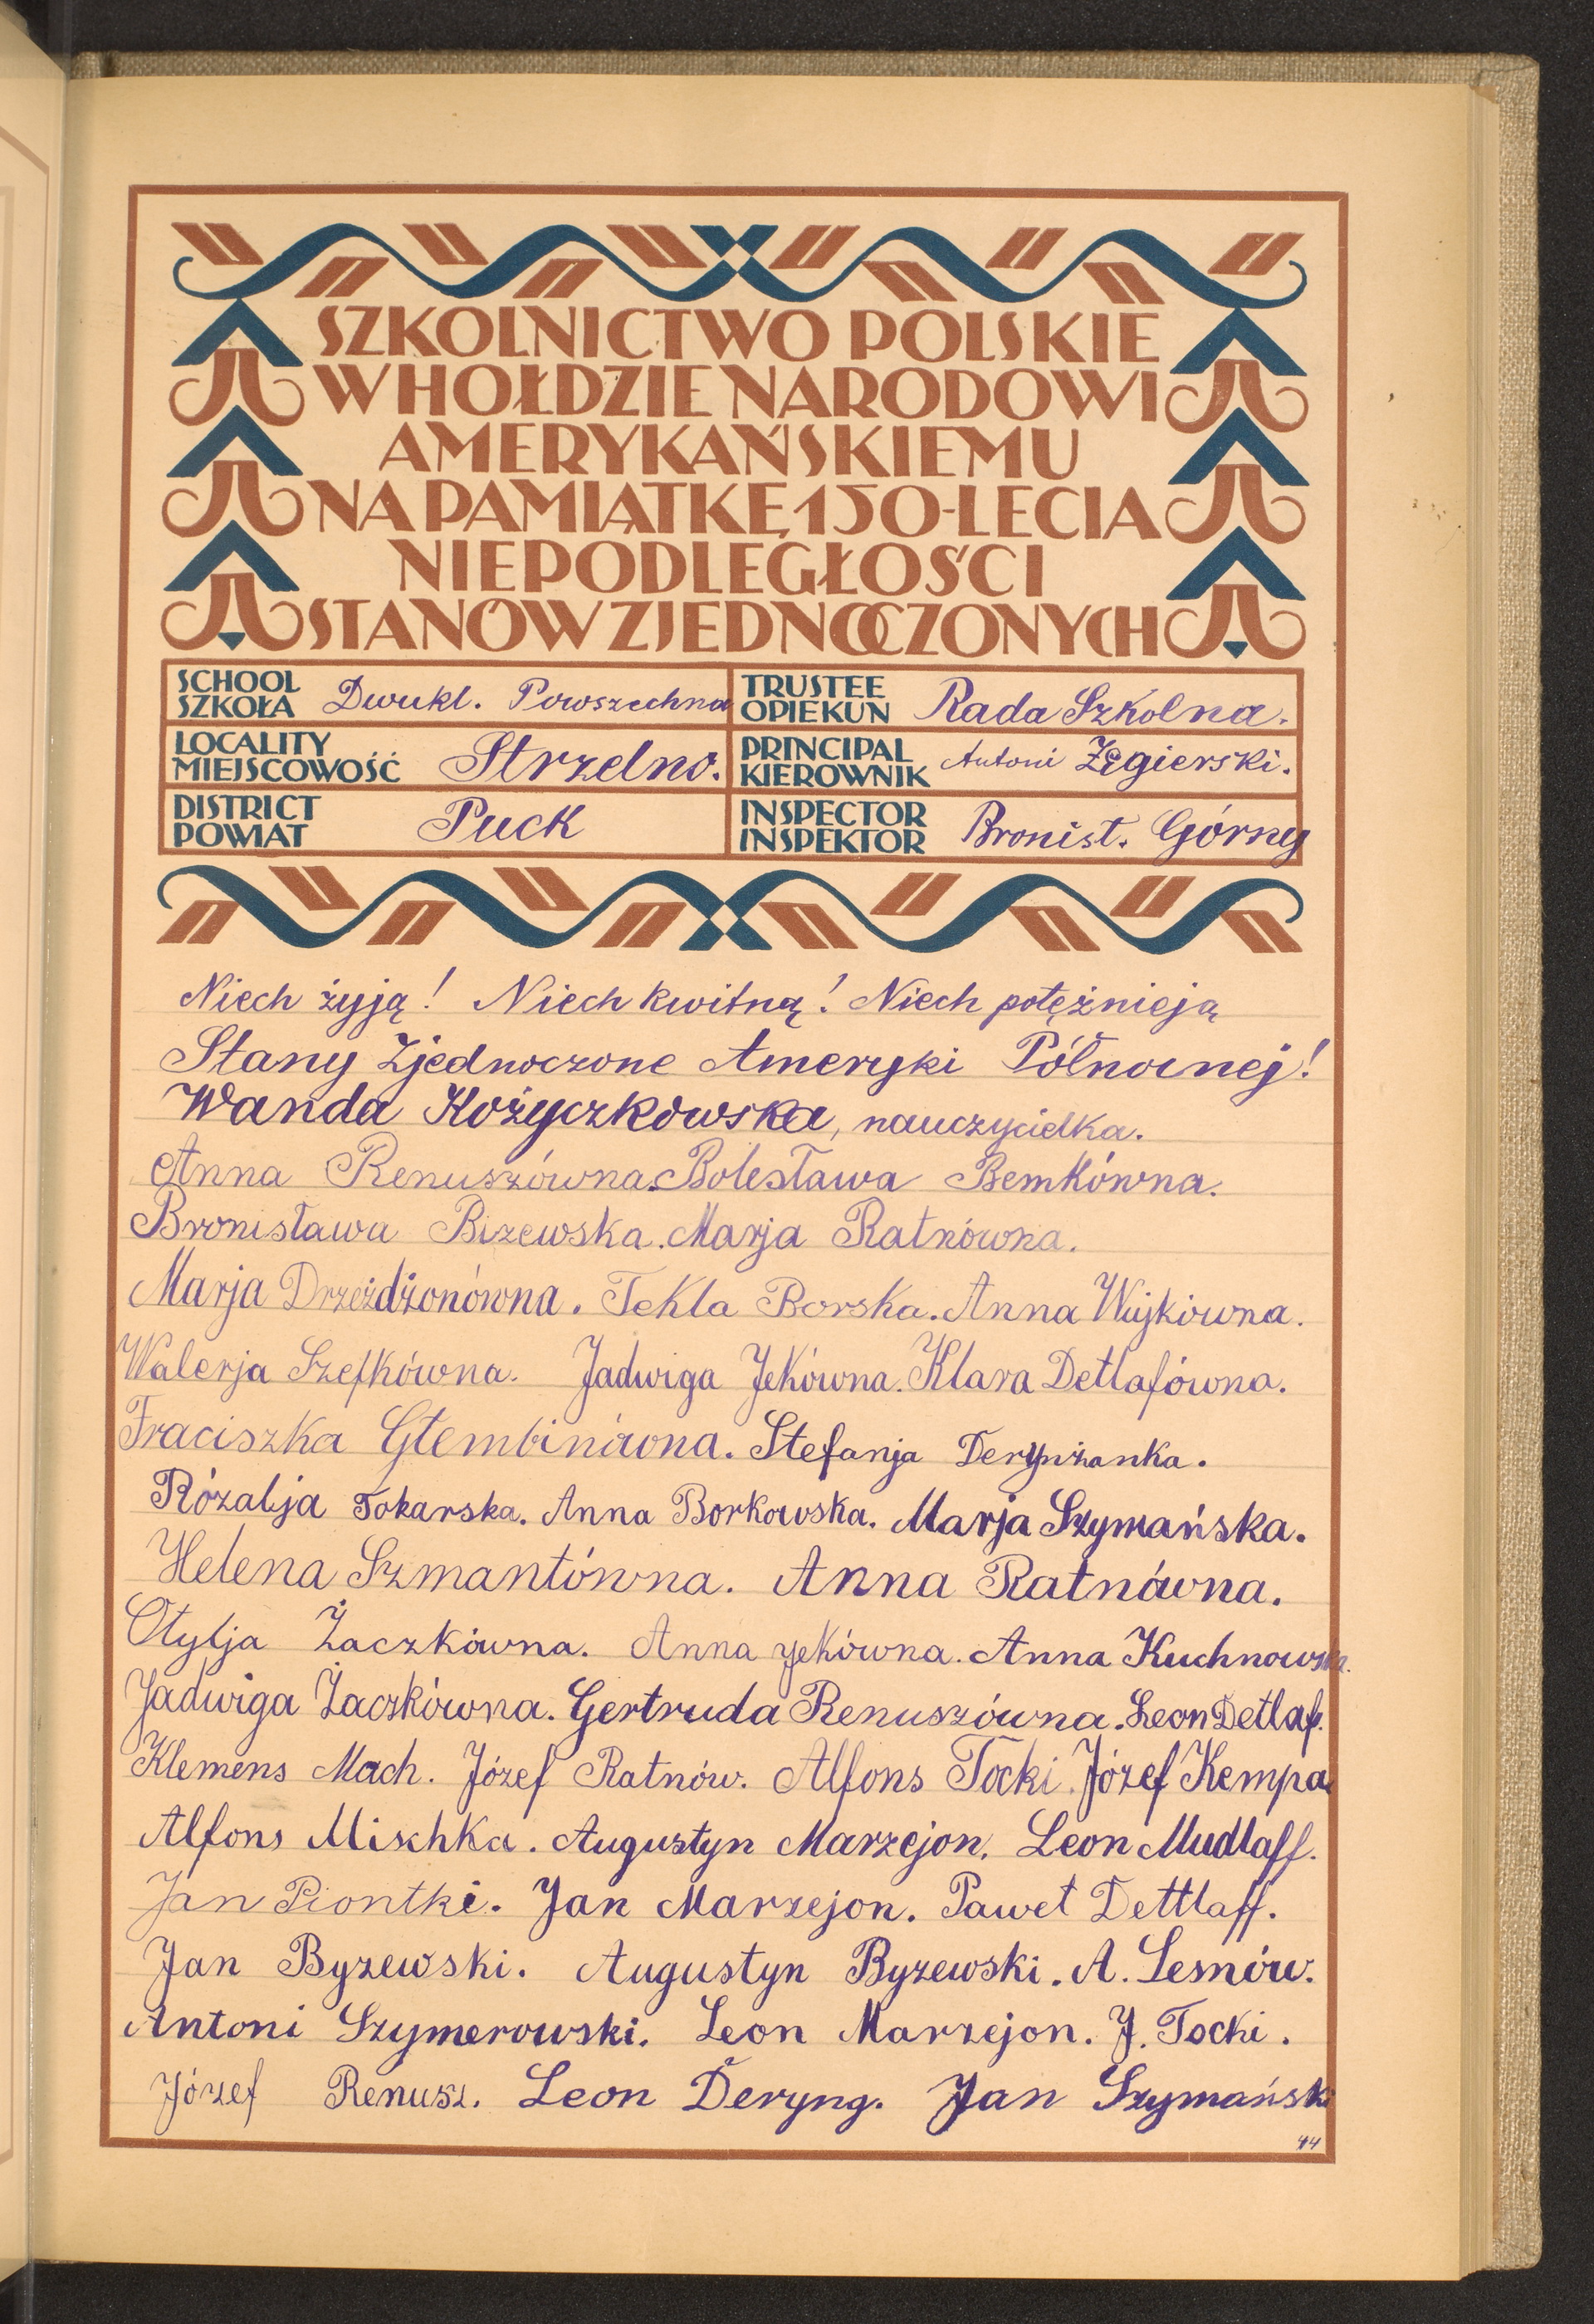 SZKOLNICTWO POLSKIE
W HOŁDZIE NARODOWI
AMERYKAŃSKIEMU
NA PAMIĄTKĘ 150-LECIA
NIEPODLEGŁOŚCI
STANÓW ZJEDNOCZONYCH
SCHOOL
SZKOŁA Dwukl. Powszechna
TRUSTEE
OPIEKUN Rada Szkolna.
LOCALITY
MIEJSCOWOŚĆ Strzelno.
PRINCIPAL
KIEROWNIK Antoni Zegierski.
DISTRICT
POWIAT Puck
INSPECTOR
INSPEKTOR Bronist. Górny
Niech żyją! Niech kwitną! Niech potężnieją
Stany Zjednoczone Ameryki Północnej!
Wanda Kożyczkowska, nauczycielka.
Anna Renuszówna. Bolesława Bemkówna.
Bronisława Bizewska. Marja Ratnówna.
Marja Drzeżdżonówna. Tekla Borska. Anna Wujkówna.
Walerja Szefkówna. Jadwiga Jekówna. Klara Detlafówna.
Fraciszka Głembinówna. Stefanja Derynżanka.
Rózalja Tokarska. Anna Borkowska. Marja Szymańska.
Helena Szmantówna. Anna Ratnówna.
Otylja Żaczkówna. Anna Jekówna. Anna Kuchnowska.
Jadwiga Żaczkówna. Gertruda Renuszówna. Leon Detlaf.
Klemens Mach. Józef Ratnów. Alfons Tocki. Józef Kempa.
Alfons Mischka. Augustyn Marzejon. Leon Mudlaff.
Jan Piontke. Jan Marzejon. Paweł Dettlaff.
Jan Byzewski. Augustyn Byzewski. A. Lesnów.
Antoni Szymerowski. Leon Marzejon. J. Tocki.
Józef Renusz. Leon Deryng. Jan Szymański
44